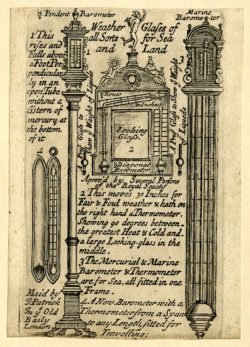 Pendent Barometer
Weather Glases of
all Sorts for Sea
and Land
Marine
Barometer
1 This
rises and
Falls above
a Foot Per-
pendicular-
ly in an
open Tube
without a
Cistern of
mercury at
the bottom
of it
Looking-
Glass
2
Diagonal
Barometer
Aprov'd by Several Persons
of the Royal Society
2 This moves 30 Inches for
Fair & Foul weather & hath on
the right hand a Thermometer.
Shewing 90 degrees between
the greatest Heat & Cold and
a large Looking-glass in the
middle.
3 The Mercurial & Marine
Barometer & Thermometer
are for Sea, all fitted in one
Frame.
4 A New Barometer with a
Thermometer from a Span
to any Length fitted for
Travelling.
Made by
J: Patrick
In ye Old
Baily
London